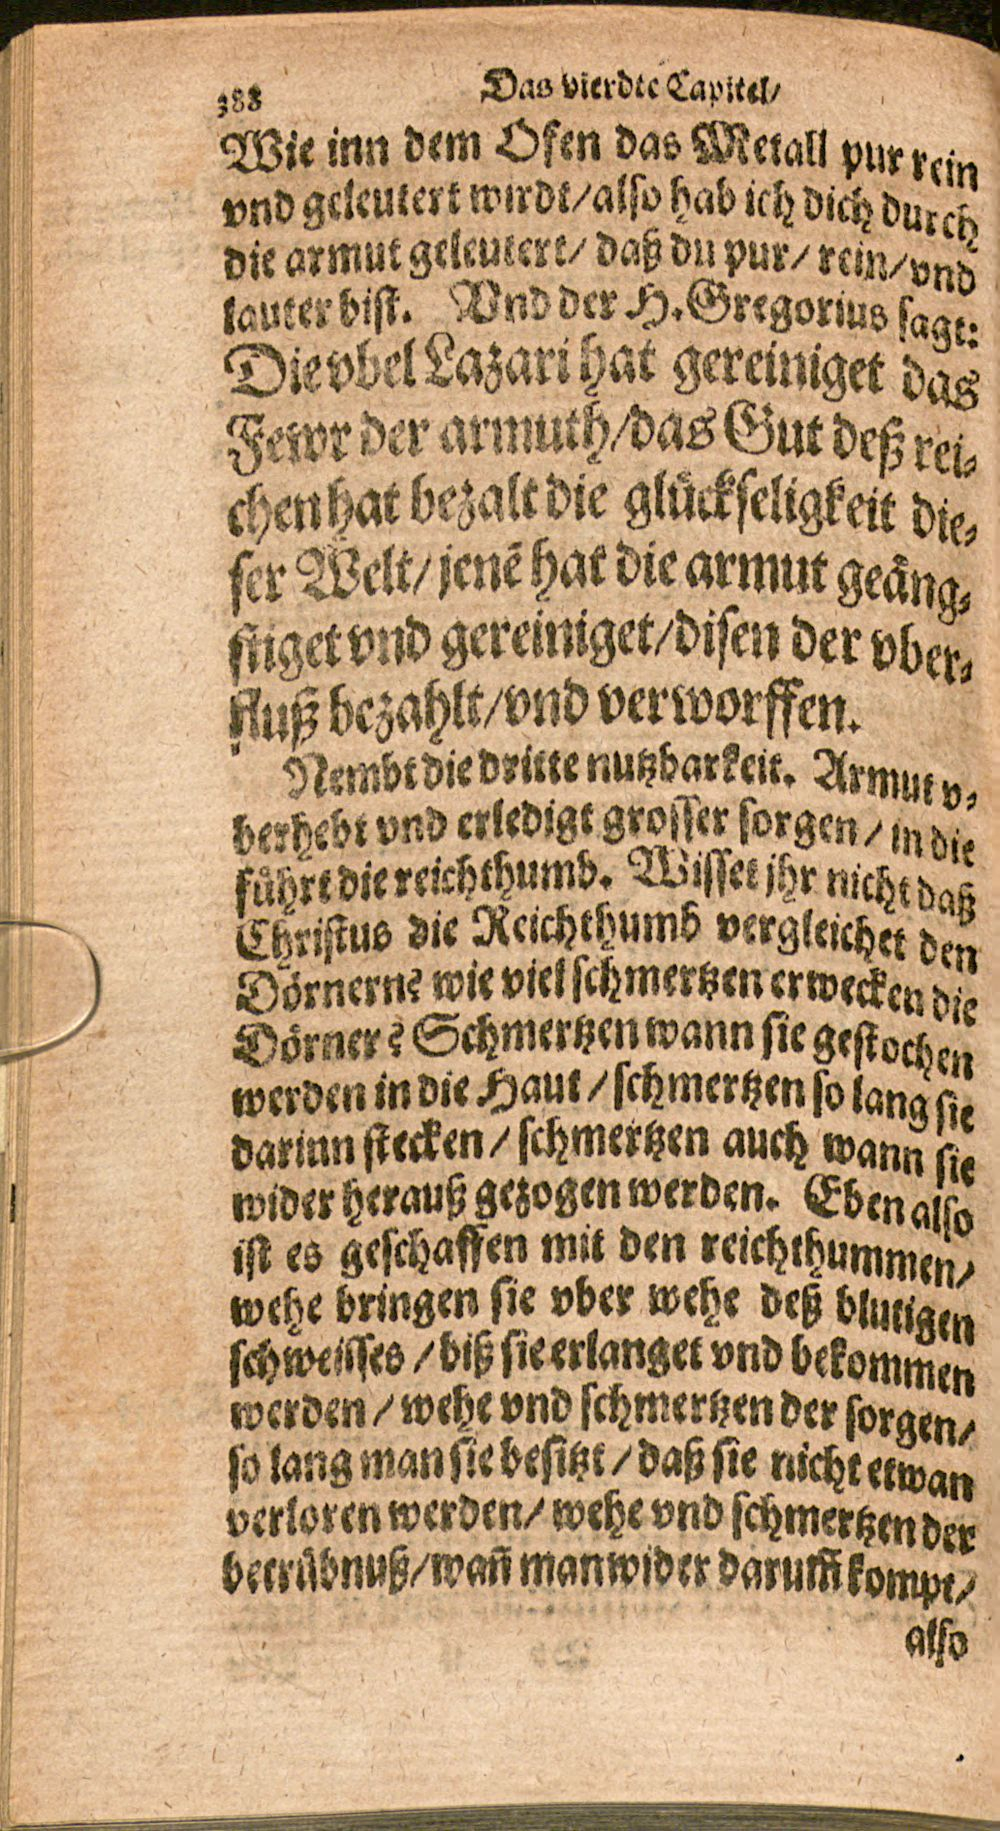 388
Das vierdte Capitel/
Wie inn dem Ofen das Metall pur rein
vnd geleutert wirdt/also hab ich dich durch
die armut geleutert/ daß du pur/ rein/vnd
lauter bist. Vnd der H. Gregorius sagt:
Die vbel Lazari hat gereiniget das
Fewr der armuth/das Gut deß rei-
chen hat bezalt die glückseligkeit die-
ser Welt/ jenē hat die armut geäng-
stiget vnd gereiniget/disen der vber-
fluß bezahlt/vnd verworffen.
Nembt die dritte nutzbarkeit. Armut v-
berhebt vnd erledigt grosser sorgen/ in die
führt die reichthumb. Wisset jhr nicht daß
Christus die Reichthumb vergleichet den
Dörnern? wie viel schmertzen erwecken die
Dörner? Schmertzen wann sie gestochen
werden in die Haut/ schmertzen so lang sie
darinn stecken/ schmertzen auch wann sie
wider herauß gezogen werden. Eben also
ist es geschaffen mit den reichthummen/
wehe bringen sie vber wehe deß blutigen
schweisses/ biß sie erlanget vnd bekommen
werden/ wehe vnd schmertzen der sorgen/
so lang man sie besitzt/ daß sie nicht etwan
verloren werden/ wehe vnd schmertzen der
betrübnuß/wañ man wider darum̃ kompt/
also